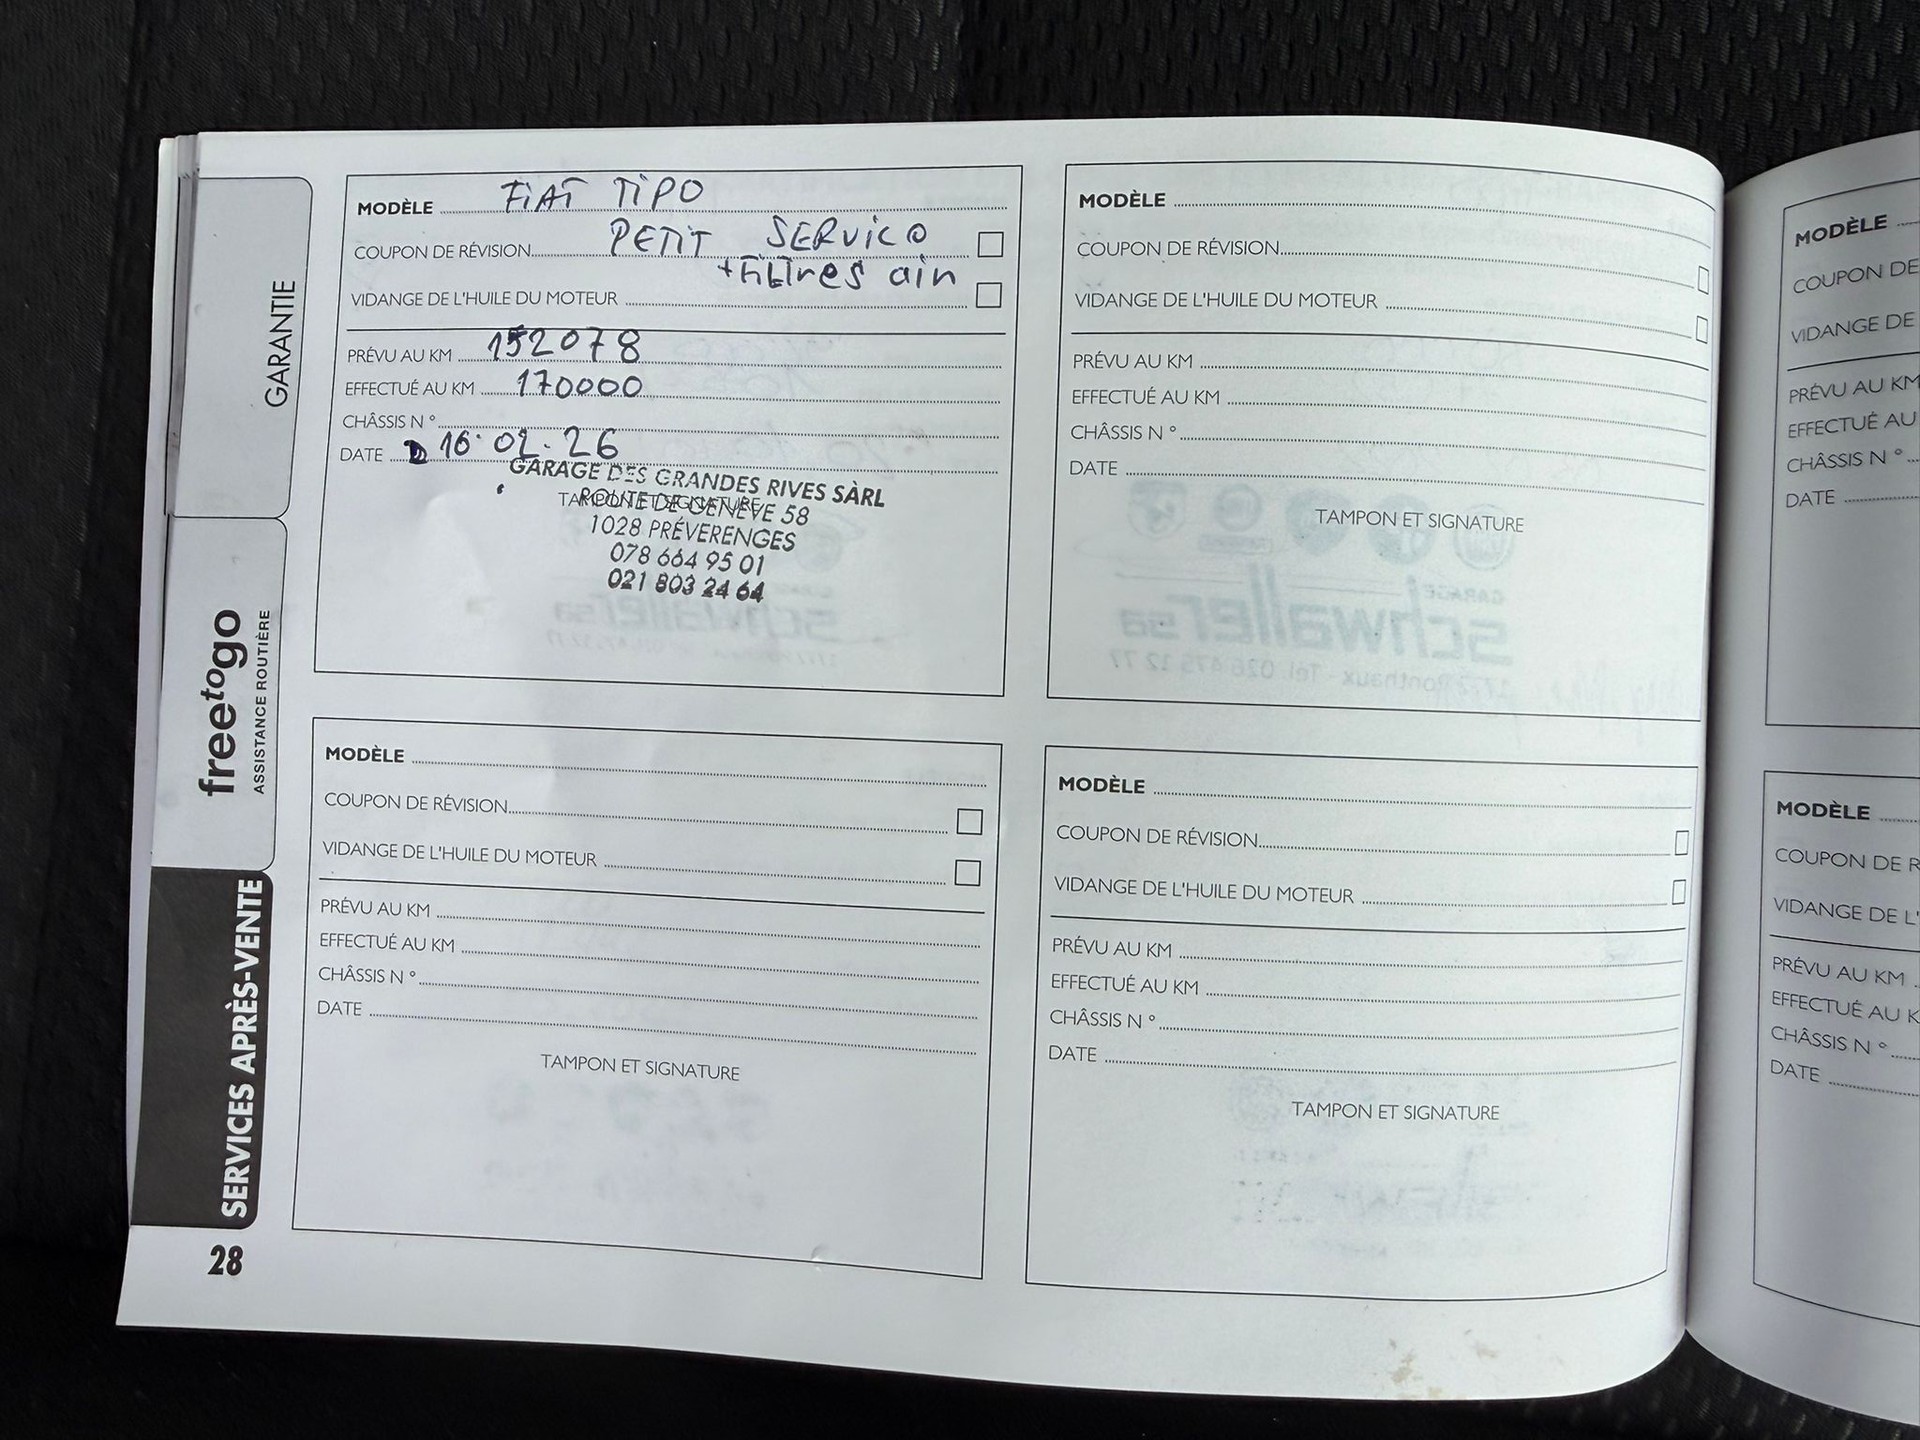 GARANTIE
freetogo
ASSISTANCE ROUTIÈRE
SERVICES APRÈS-VENTE
28
MODÈLE FiAT TiPO
COUPON DE RÉVISION PETiT SERViCO
+FiLtres air
VIDANGE DE L'HUILE DU MOTEUR
PRÉVU AU KM 152078
EFFECTUÉ AU KM 170000
CHÂSSIS N°
DATE 16.02.26
GARAGE DES GRANDES RIVES SÀRL
TAMPON ET SIGNATURE
ROUTE DE GENÈVE 58
1028 PRÉVERENGES
078 664 95 01
021 803 24 64
MODÈLE
COUPON DE RÉVISION
VIDANGE DE L'HUILE DU MOTEUR
PRÉVU AU KM
EFFECTUÉ AU KM
CHÂSSIS N°
DATE
TAMPON ET SIGNATURE
MODÈLE
COUPON DE RÉVISION
VIDANGE DE L'HUILE DU MOTEUR
PRÉVU AU KM
EFFECTUÉ AU KM
CHÂSSIS N°
DATE
TAMPON ET SIGNATURE
MODÈLE
COUPON DE RÉVISION
VIDANGE DE L'HUILE DU MOTEUR
PRÉVU AU KM
EFFECTUÉ AU KM
CHÂSSIS N°
DATE
TAMPON ET SIGNATURE
MODÈLE
COUPON DE
VIDANGE DE
PRÉVU AU KM
EFFECTUÉ AU
CHÂSSIS N°
DATE
MODÈLE
COUPON DE R
VIDANGE DE L'
PRÉVU AU KM
EFFECTUÉ AU K
CHÂSSIS N°
DATE